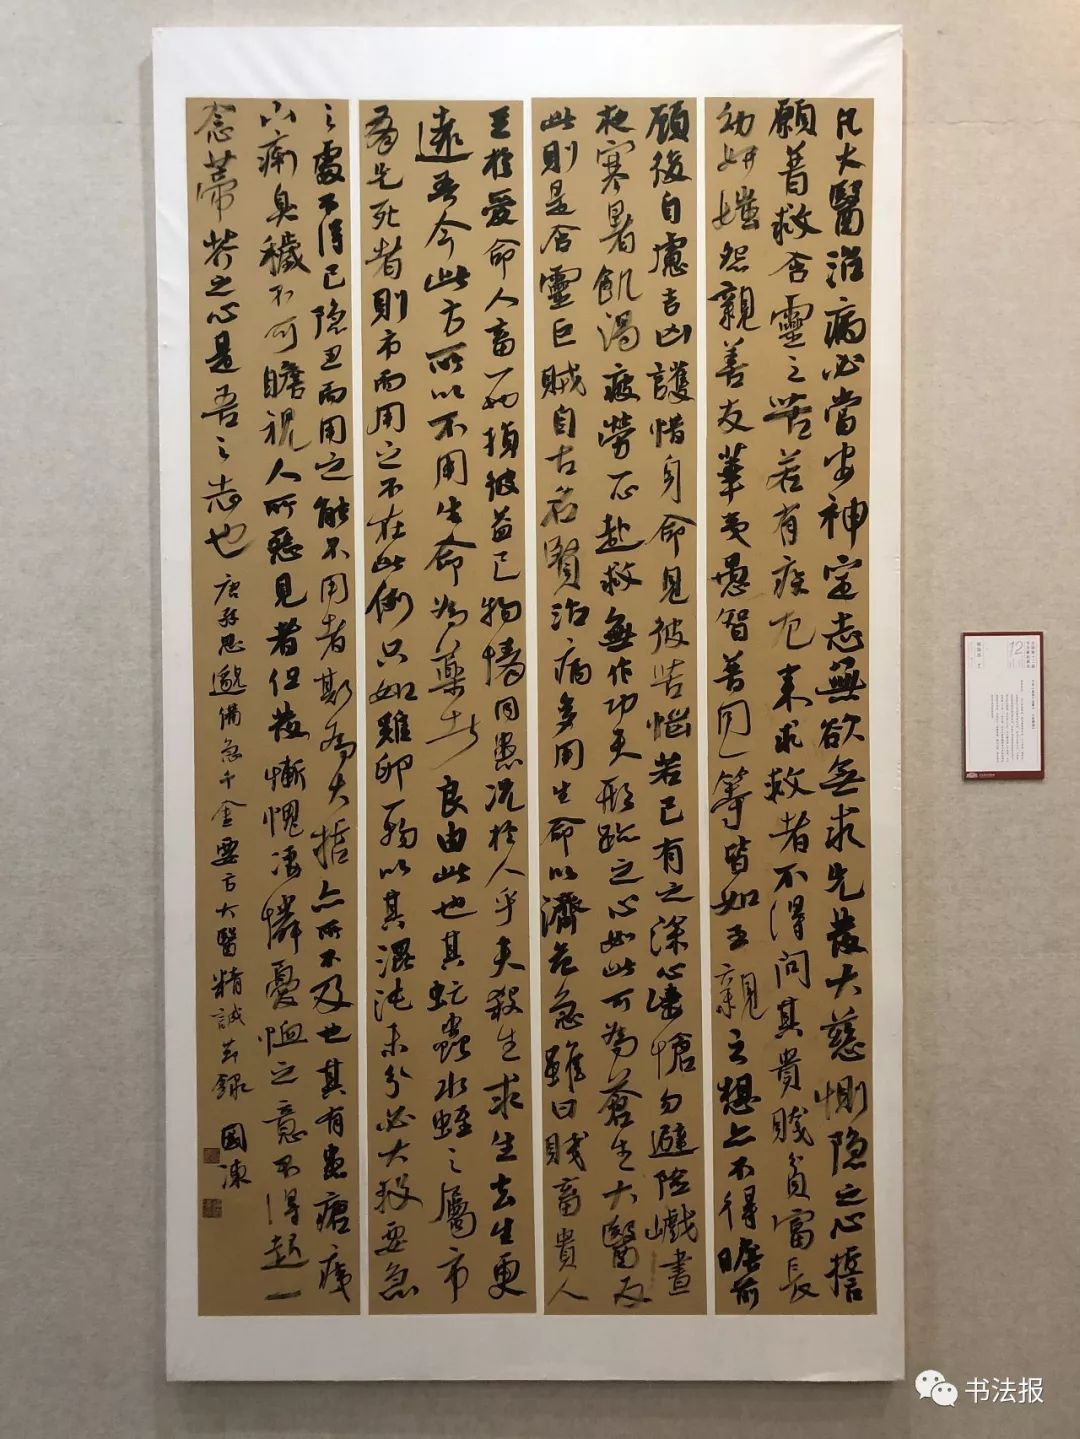 凡大醫治病必當安神定志無欲無求先發大慈惻隐之心誓
願普救含靈之苦若有疾厄来求救者不得問其貴賤貧富長
幼妍媸怨親善友華夷愚智普同一等皆如至親之想亦不得瞻前
顧後自慮吉凶護惜身命見彼苦惱若己有之深心悽愴勿避險巇晝
夜寒暑飢渴疲勞一心赴救無作功夫形跡之心如此可為蒼生大醫反
此則是含靈巨賊自古名賢治病多用生命以濟危急雖曰賤畜貴人
至於愛命人畜一也損彼益己物情同患況於人乎夫殺生求生去生更
遠吾今此方所以不用生命為藥者良由此也其虻蟲水蛭之屬市
有先死者則市而用之不在此例只如雞卵一物以其混沌未分必大段要急
之處不得已隐忍而用之能不用者斯為大哲亦所不及也其有患瘡痍
下痢臭穢不可瞻視人所惡見者但發慚愧悽憐憂恤之意不得起一
念蒂芥之心是吾之志也 唐孫思邈備急千金要方大醫精誠節錄 國涑
12
书法报